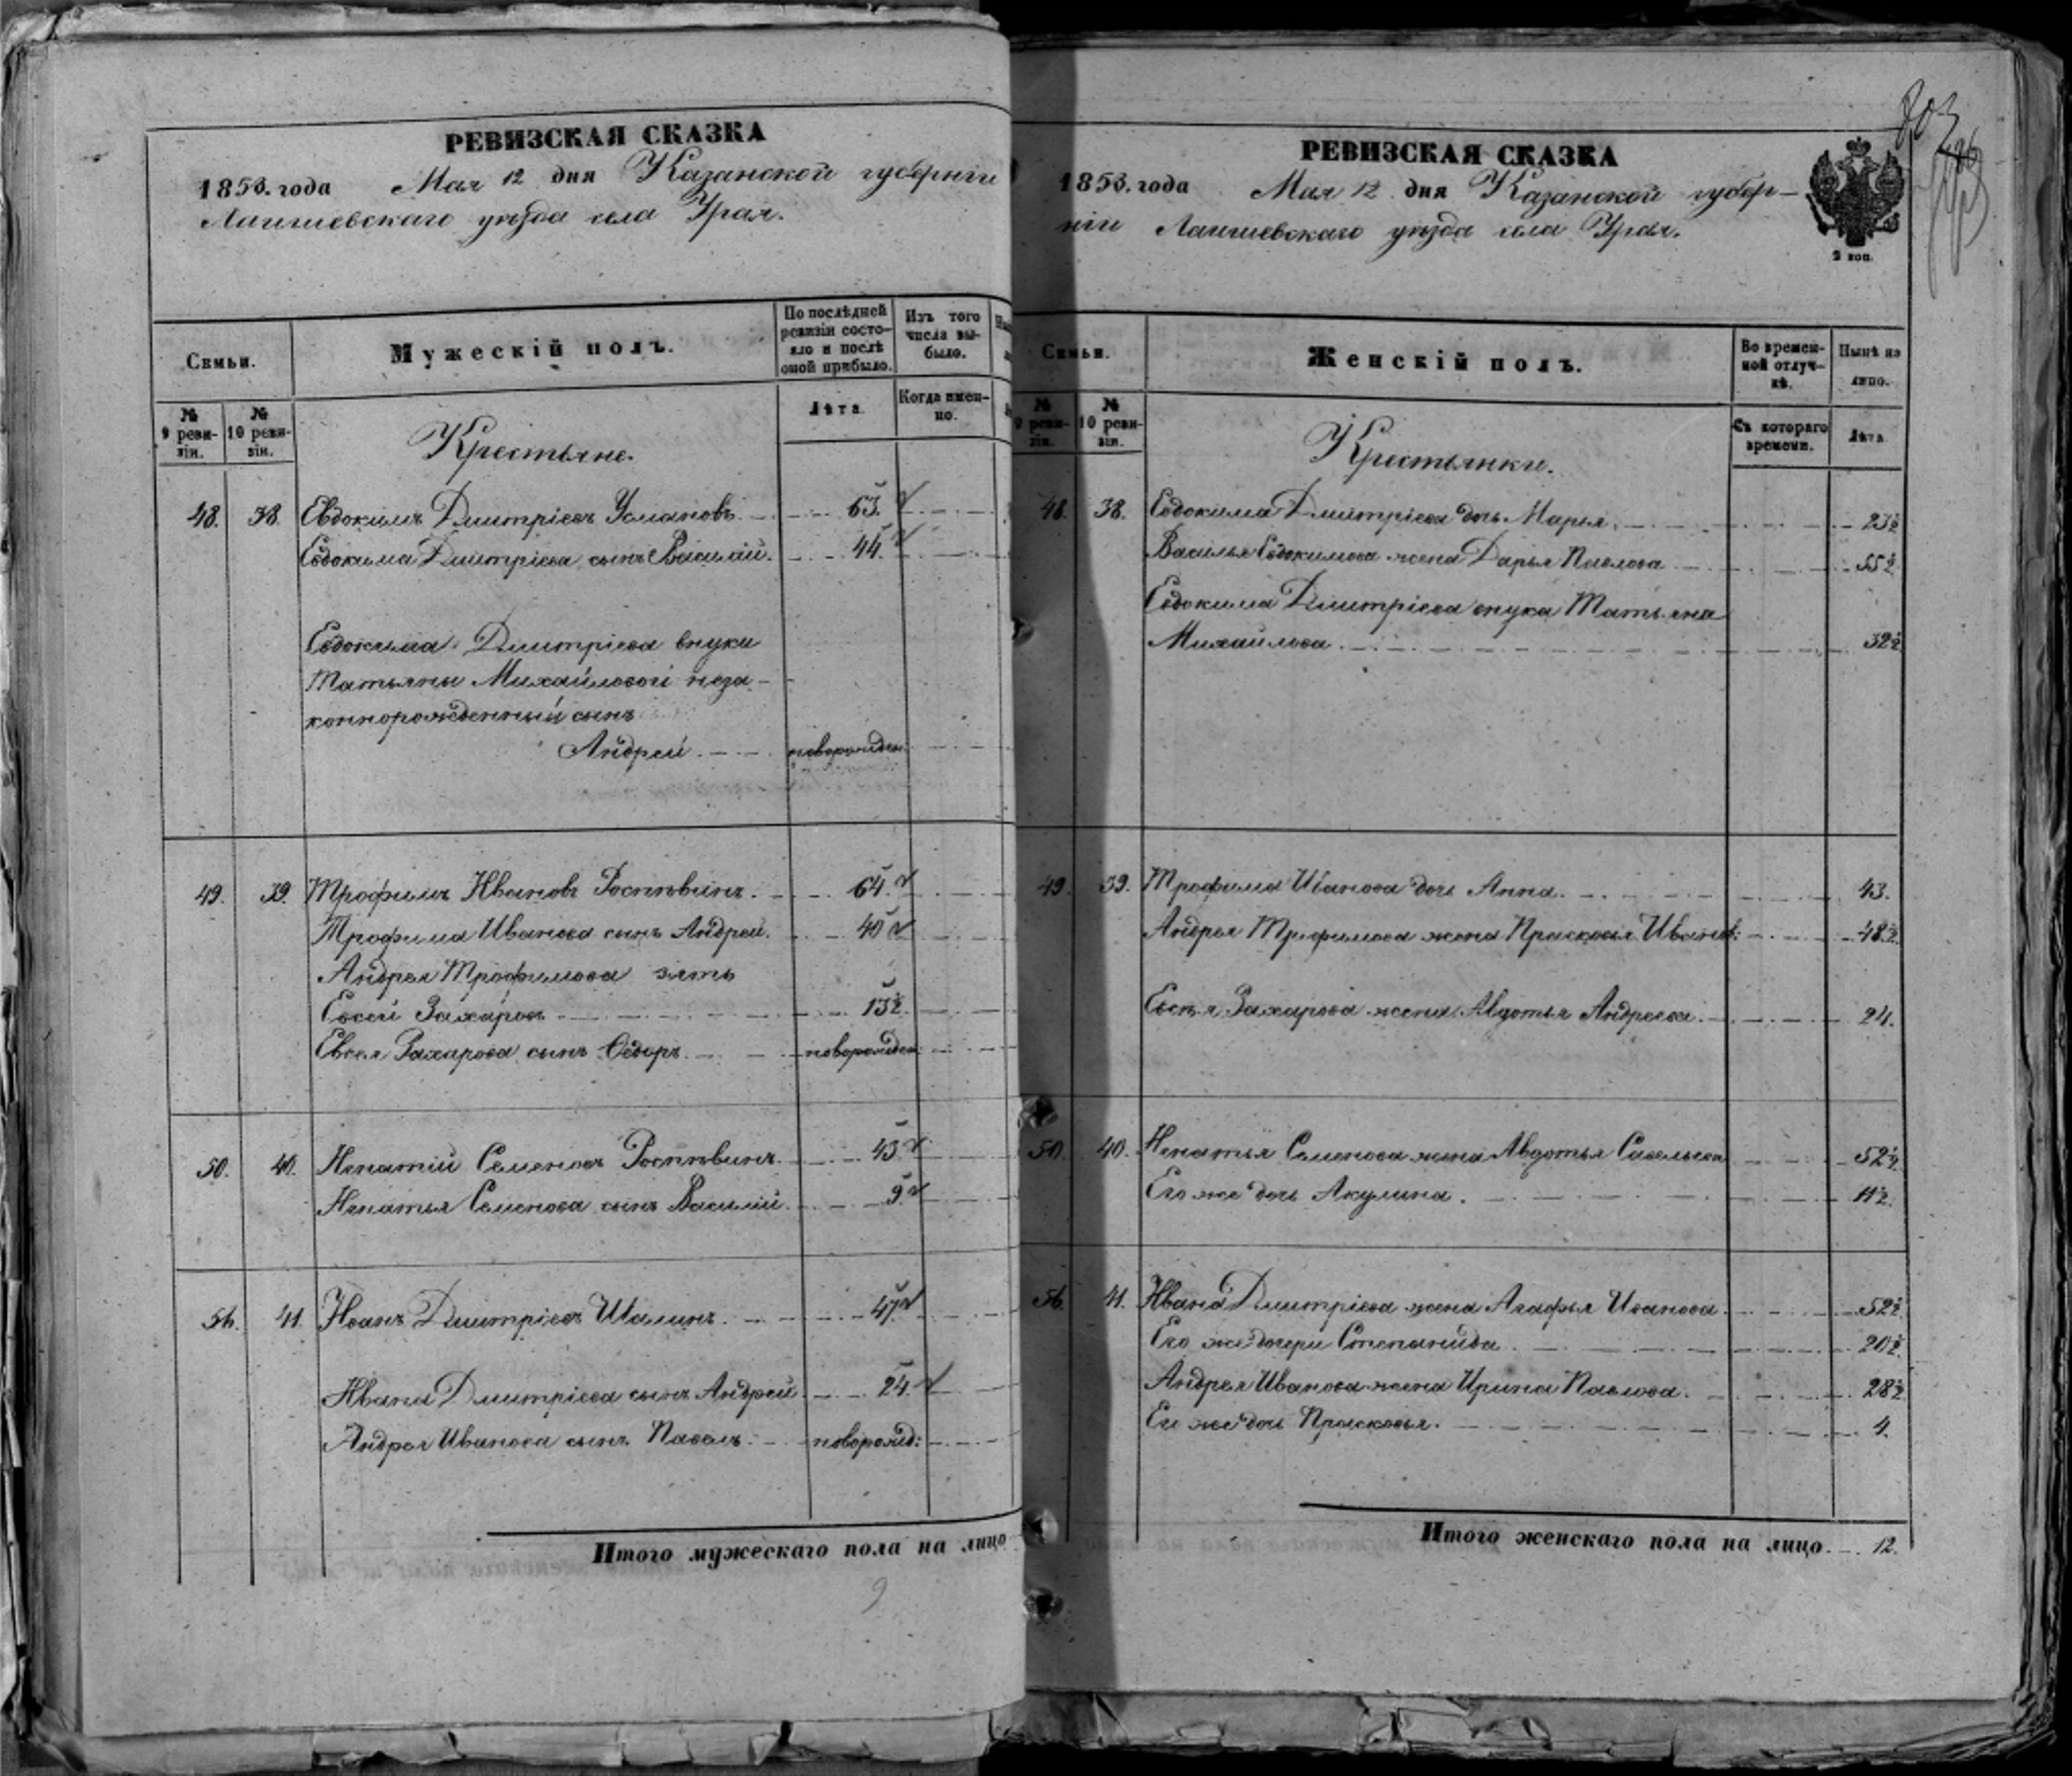 РЕВИЗСКАЯ СКАЗКА
1858. года Мая 12 дня Казанской губернiи
Лаишевскаго уѣзда села Урая.
Семьи.
Мужескiй полъ.
По послѣдней ревизiи состояло и послѣ оной прибыло.
Изъ того числа выбыло.
№ 9 ревизiи.
№ 10 ревизiи.
Лѣта.
Когда именно.
Крестьяне.
48. 38. Евдокимъ Дмитрiевъ Усмановъ. 63.
Евдокима Дмитрiева сынъ Василiй. 44.
Евдокима Дмитрiева внуки
Татьяны Михайловой неза-
коннорожденный сынъ
Андрей. новорожден.
49. 39. Трофимъ Ивановъ 64.
Трофима Иванова сынъ Андрей. 40
Андрея Трофимова зять
Евсей Захаровъ 13½.
Евсея Захарова сынъ Ѳедоръ. новорожден.
50. 40. Игнатiй Семеновъ 43
Игнатья Семенова сынъ Василiй. 9.
56. 41. Иванъ Дмитрiевъ Шалинъ. 47
Ивана Дмитрiева сынъ Андрей. 24.
Андрея Иванова сынъ Павелъ. новорожд:
Итого мужескаго пола на лицо
9
РЕВИЗСКАЯ СКАЗКА
1858. года Мая 12 дня Казанской губер-
нiи Лаишевскаго уѣзда села Урая.
2 коп.
803
Семьи.
Женскiй полъ.
Во временной отлучкѣ.
Нынѣ на лицо.
№ 9 ревизiи.
№ 10 ревизiи.
Съ котораго времени.
Лѣта.
Крестьянки.
48. 38. Евдокима Дмитрiева дочь Марья. 23½
Василья Евдокимова жена Дарья Павлова 55½
Евдокима Дмитрiева внука Татьяна
Михайлова. 32½
49. 39. Трофима Иванова дочь Анна. 43.
Андрея Трофимова жена Прасковья Иванов: 48½.
Евсѣя Захарова жена Авдотья Андреева. 24.
50. 40. Игнатья Семенова жена Авдотья Савельева 52½
Его же дочь Акулина. 11½.
56. 41. Ивана Дмитрiева жена Агафья Иванова. 52½
Его же дочери Степанида. 20½.
Андрея Иванова жена Ирина Павлова. 28½
Его же дочь Прасковья. 4.
Итого женскаго пола на лицо. 12.